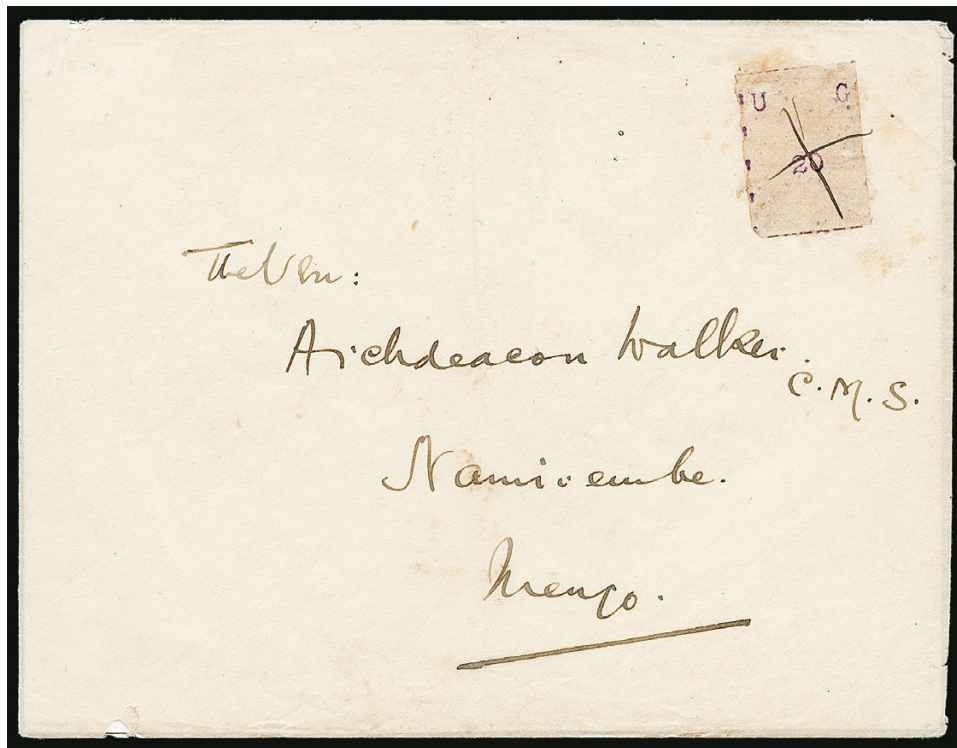 U G
20
The Ven:
Archdeacon Walker.
C. M. S.
Namirembe.
Mengo.